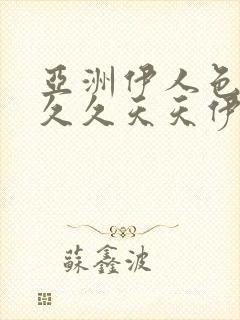 亞洲伊人色
久久天天伊
蘇鑫波